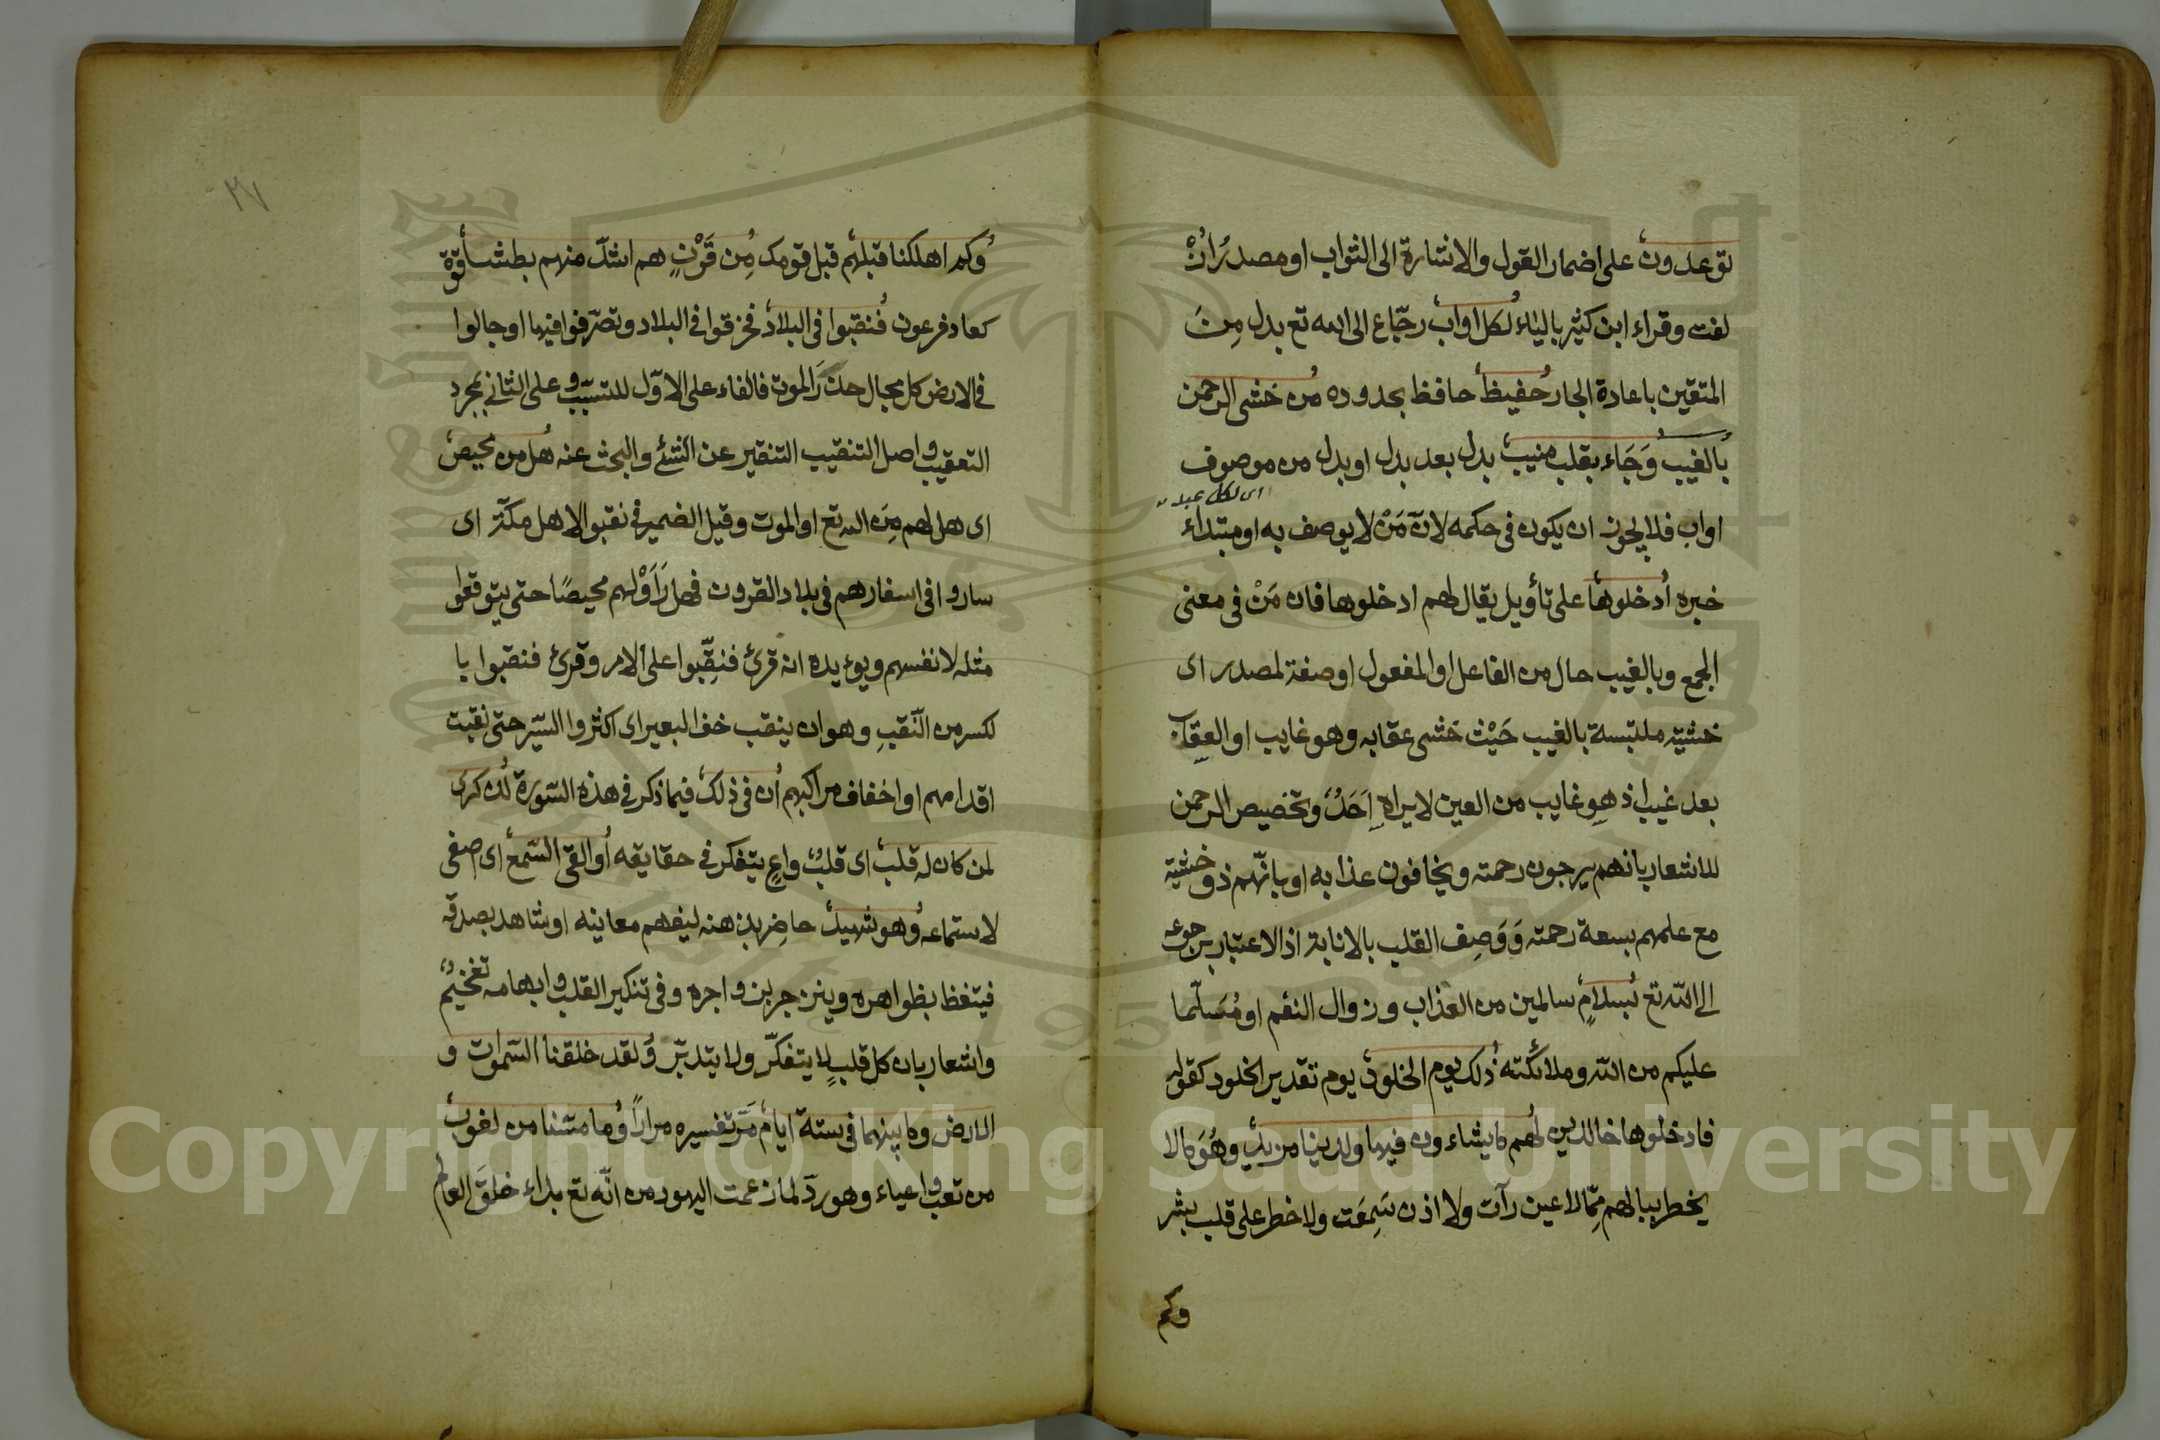 توعدون على اضمار القول والاشارة الى الثواب او مصدر ازلفت
لفت وقراء ابن كثير بالياء لكل اواب رجّاع الى الله تع بدل مِنَ
المتقين باعادة الجار حفيظ حافظ بحدوده من خشى الرحمن
بالغيب وَجَاء بقلب منيب بدل بعد بدل او بدل من موصوف
اى لكل عبد
اواب فلا يجوز ان يكون فى حكمه لانّ مَنْ لا يوصف به او مبتداء
خبره اُدخلوها على تأويل يقال لهم ادخلوها فان مَنْ فى معنى
الجمع وبالغيب حال من الفاعل او المفعول او صفة لمصدر اى
خشية ملتبسة بالغيب حَيْث خشى عقابه وهو غايب او العِقاب
بعد غيب اذ هو غايب من العين لا يراه اَحَدٌ وتخصيص الرحمن
للاشعار بانهم يرجون رحمته ويخافون عذابه او بانّهم ذو خشية
مع علمهم بسعة رحمته وَوَصِف القلب بالانابة اذ الاعتبار برجوعه
الى اللّه تع بسلامٍ سالمين من العذاب وزوال النقم او مُسَلّما
عليكم من اللّه وملائكته ذلك يوم الخلود يوم تقدير الخلود كقوله
فادخلوها خالدين لهم ما يشاءون فيها ولدينا مزيد وهُوَ مالا
يخطر ببالهم مِمّا لا عين رآت ولا اذن سَمِعَت ولا خطر على قلب بشر
وكم
٢٧
وكم اهلكنا قبلهم قبل قومك مِن قَرْنٍ هم اشدّ منهم بطشا قوّة
كعاد وفرعون فنقبوا فى البلاد فخرقوا فى البلاد وتصرّفوا فيها او جالوا
فى الارض كل مجال حذَرَ الموت فالفاء على الاوّل للتسبّب وعلى الثانى لمجرد
التعقيب واصل التنقيب التنقير عن الشئ والبحث عنه هل من محيص
اى هل لهم مِنَ اللّه تع او الموت وقيل الضمير فى نقبوا لاهل مكّة اى
ساروا فى اسفارهم فى بلاد القرون فهل رَاَوْلهم محيصًا حتى يتوقعوا
مثله لانفسهم ويؤيده انه قرئ فنقِّبوا على الامر وقرئ فنقبوا با
لكسر من النّقبِ وهو ان ينقب خف البعير اى اكثروا السّير حتى نقبت
اقدامهم او اخفاف مراكبهم اُن فى ذلك فيما ذكر فى هذه السّورة لذكرى
لمن كان له قلب اى قلبٌ واعٍ يتفكر فى حقايقه أو القى السّمع اى اصغى
لاستماعه وهو شهيد حاضِر بذهنه ليفهم معانيه او شاهد بصدقه
فيتعظ بظواهره وينزجر بزواجره وفى تنكير القلب وابهامه تفخيمٌ
واشعار بان كل قلبٍ لا يتفكّر ولا يتدبّر ولقد خلقنا السّموات و
الارض وما بينهما فى ستة ايام مَرّ تفسيره مرارًا وما مسّنا من لغوب
من تعب واعياء وهو ردّ لما زعمت اليهود من انّه تع بداء خلقَ العالم